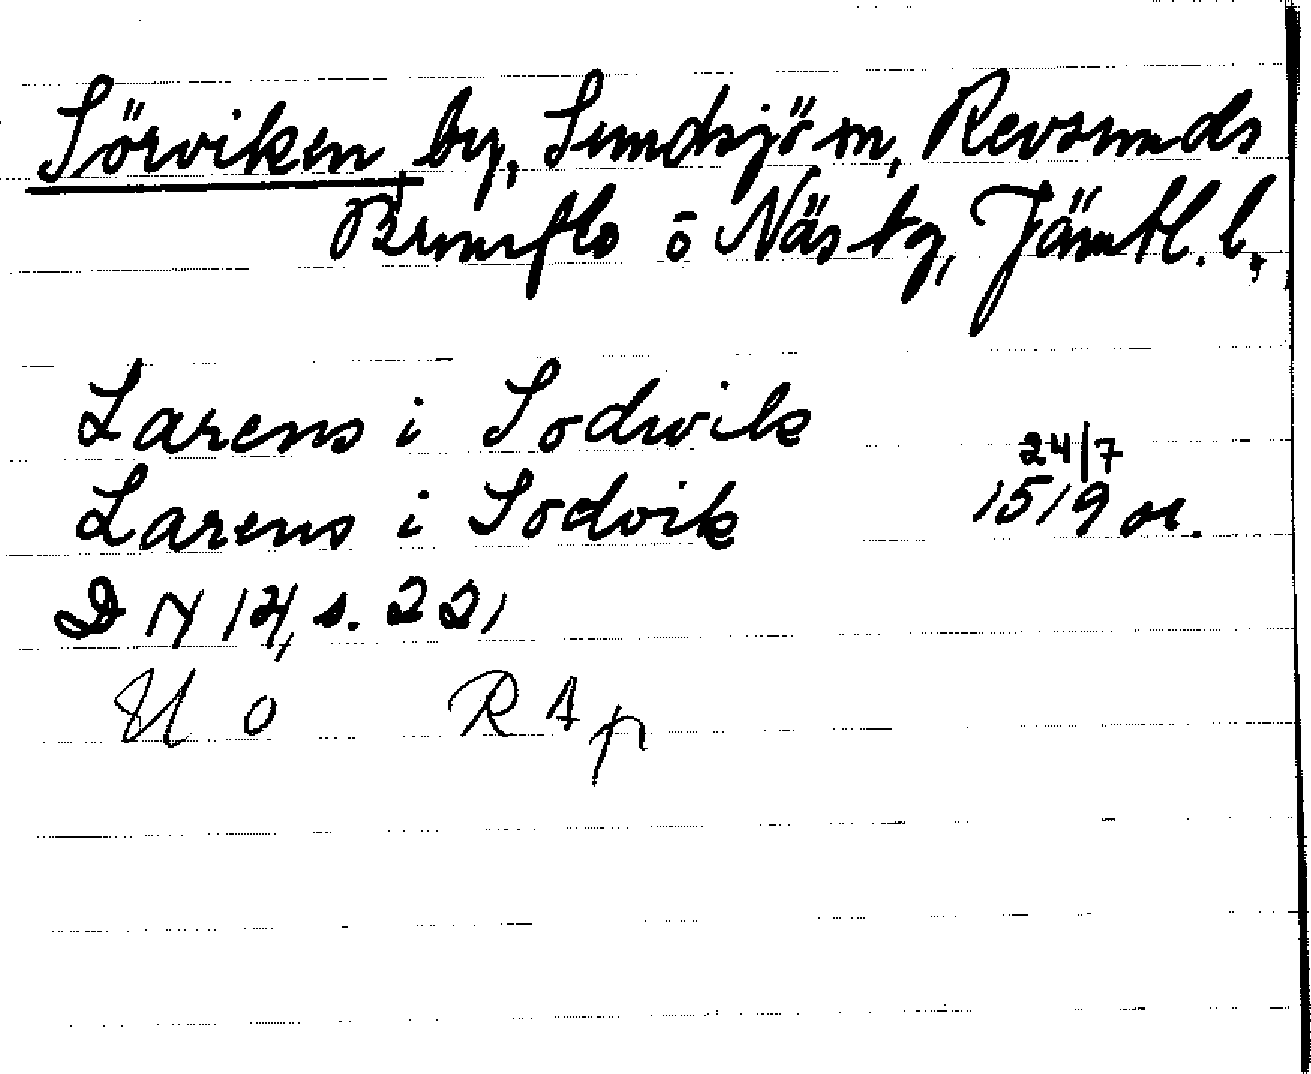 Sörviken by, Sundsjö sn, Revsunds
Brunflo o Näs tg, Jämtl. l.
Larens i Sodwik
Larens i Sodvik 24/7 1519 or.
DN 14, s. 221
U o R A p